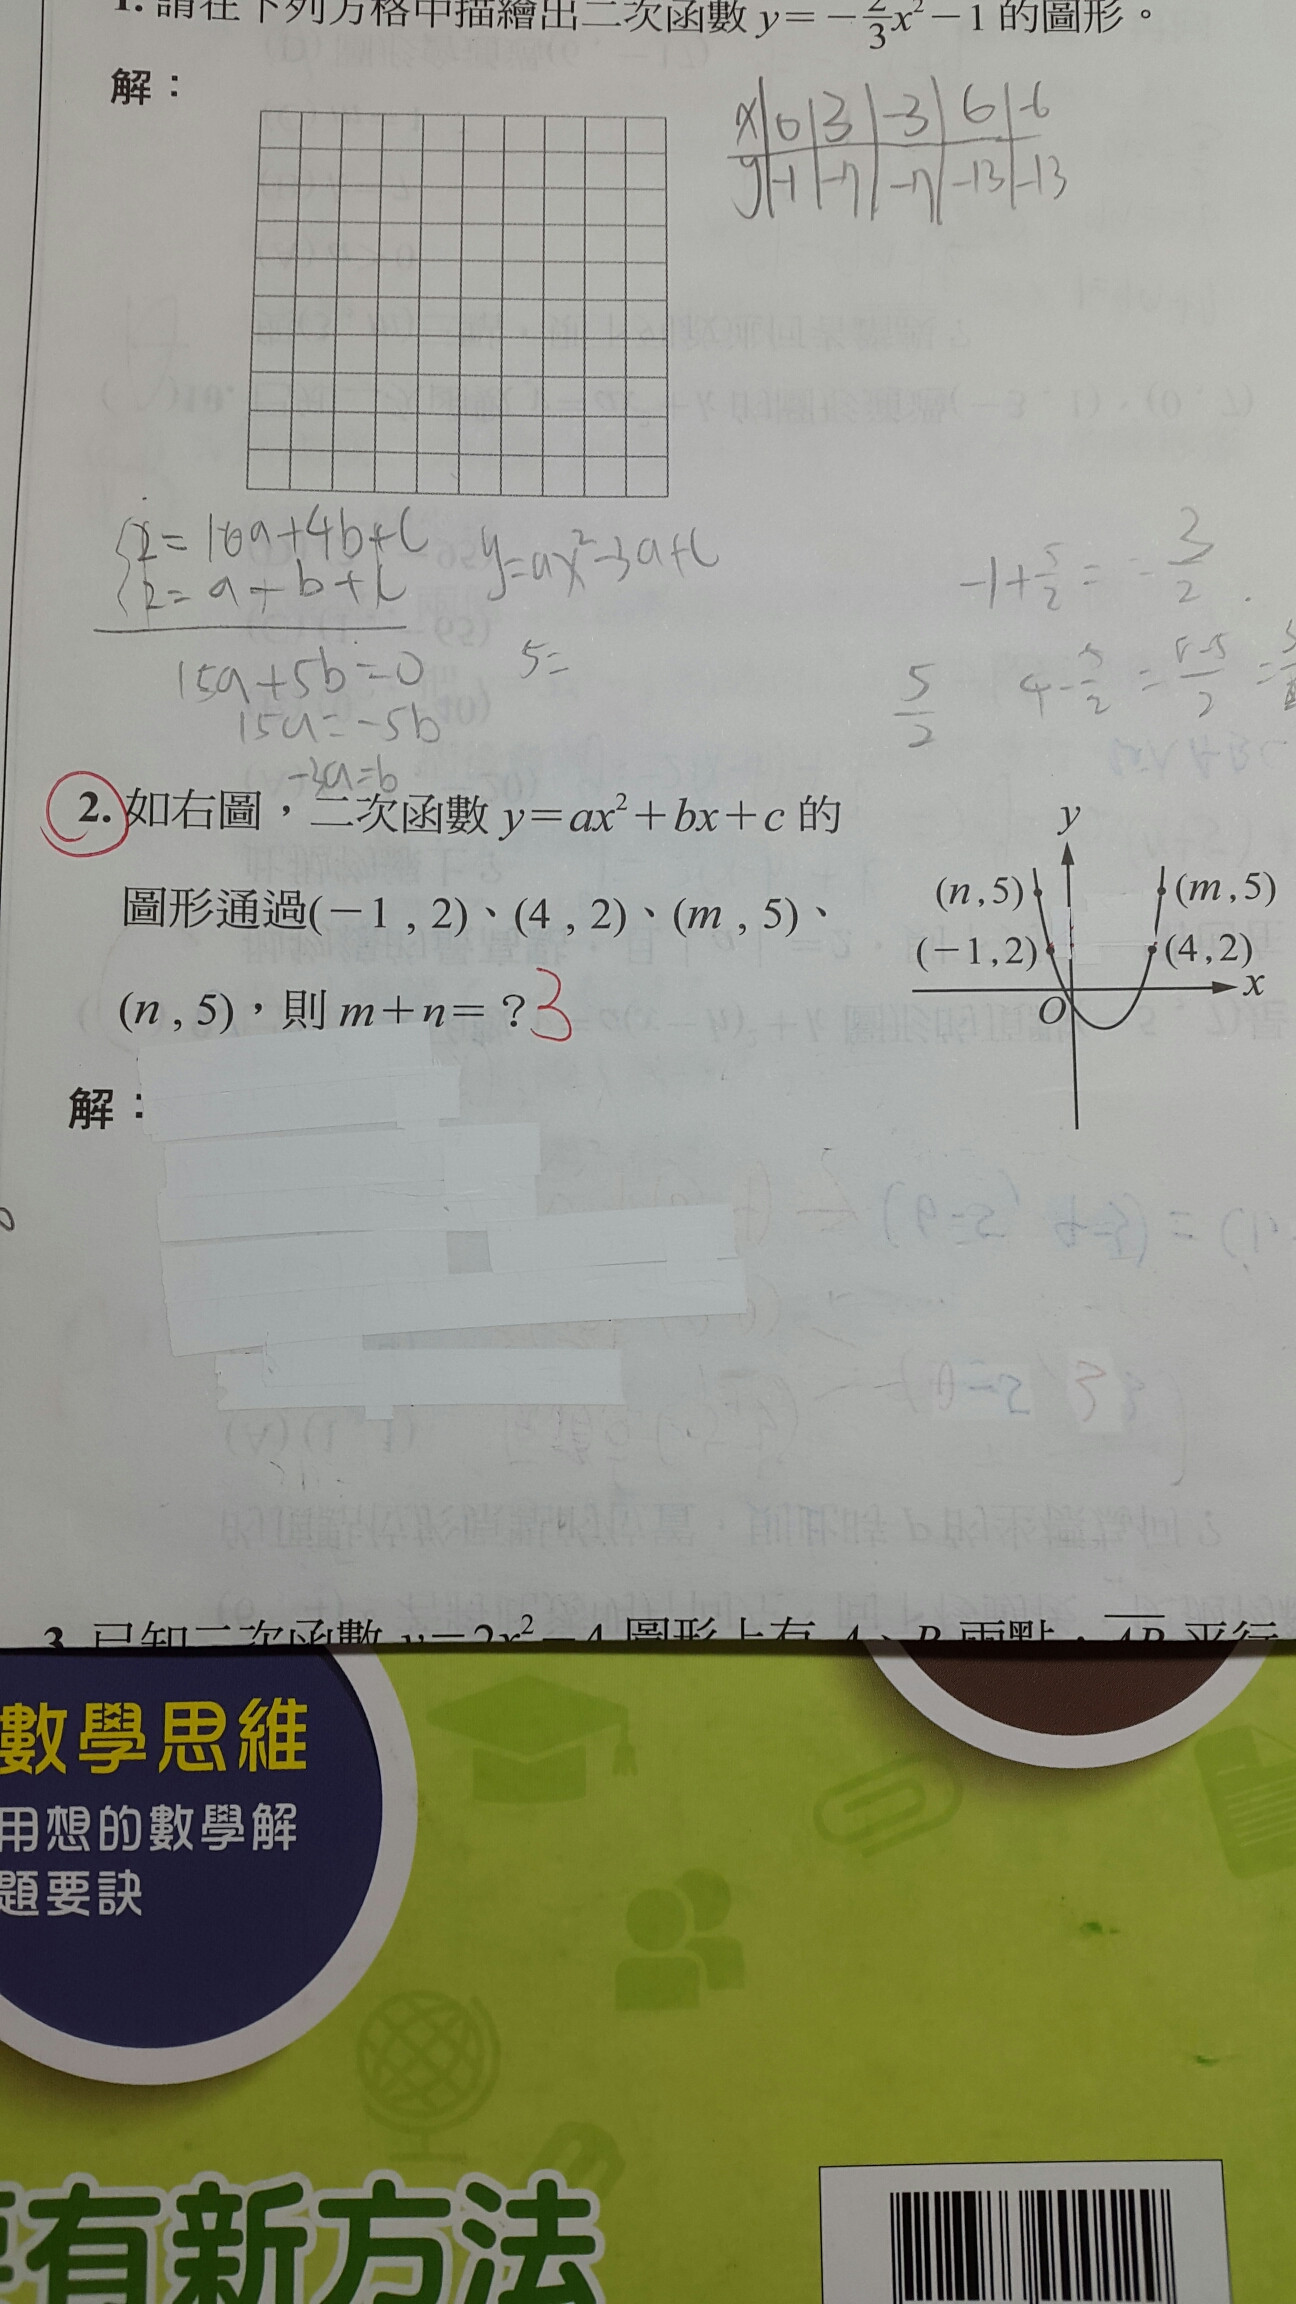 1. 請在下列方格中描繪出二次函數 y=-2/3x²-1 的圖形。
解：
x 0 3 -3 6 -6
y -1 -7 -7 -13 -13
2=16a+4b+c
2=a+b+c
15a+5b=0
15a=-5b
-3a=b
y=ax²-3a+c
5=
-1+5/2=-3/2
5/2
4-5/2=8-5/2=
2. 如右圖，二次函數 y=ax²+bx+c 的
圖形通過(-1,2)、(4,2)、(m,5)、
(n,5)，則 m+n=？3
y
(n,5)
(m,5)
(-1,2)
(4,2)
x
O
解：
3. 已知二次函數 y=2x²-4 圖形上有 A、B 兩點，AB 平行
數學思維
用想的數學解
題要訣
有新方法